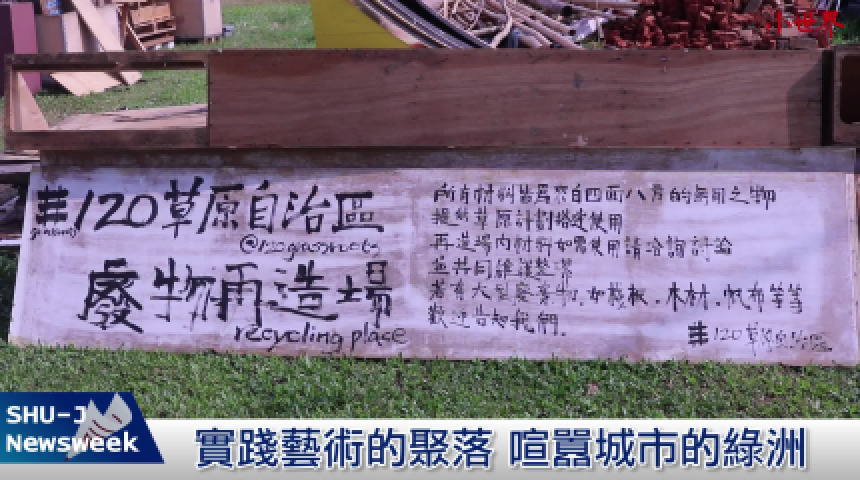 小世界
120草原自治區
@120grassroots
廢物再造場
recycling place
所有材料皆為來自四面八方的無用之物
提供草原計劃搭建使用
再造場內材料如需使用請洽詢討論
並共同維護整潔
若有大型廢棄物,如棧板、木材、帆布等等
歡迎告知我們。
120草原自治區
SHU-J
Newsweek
實踐藝術的聚落 喧囂城市的綠洲